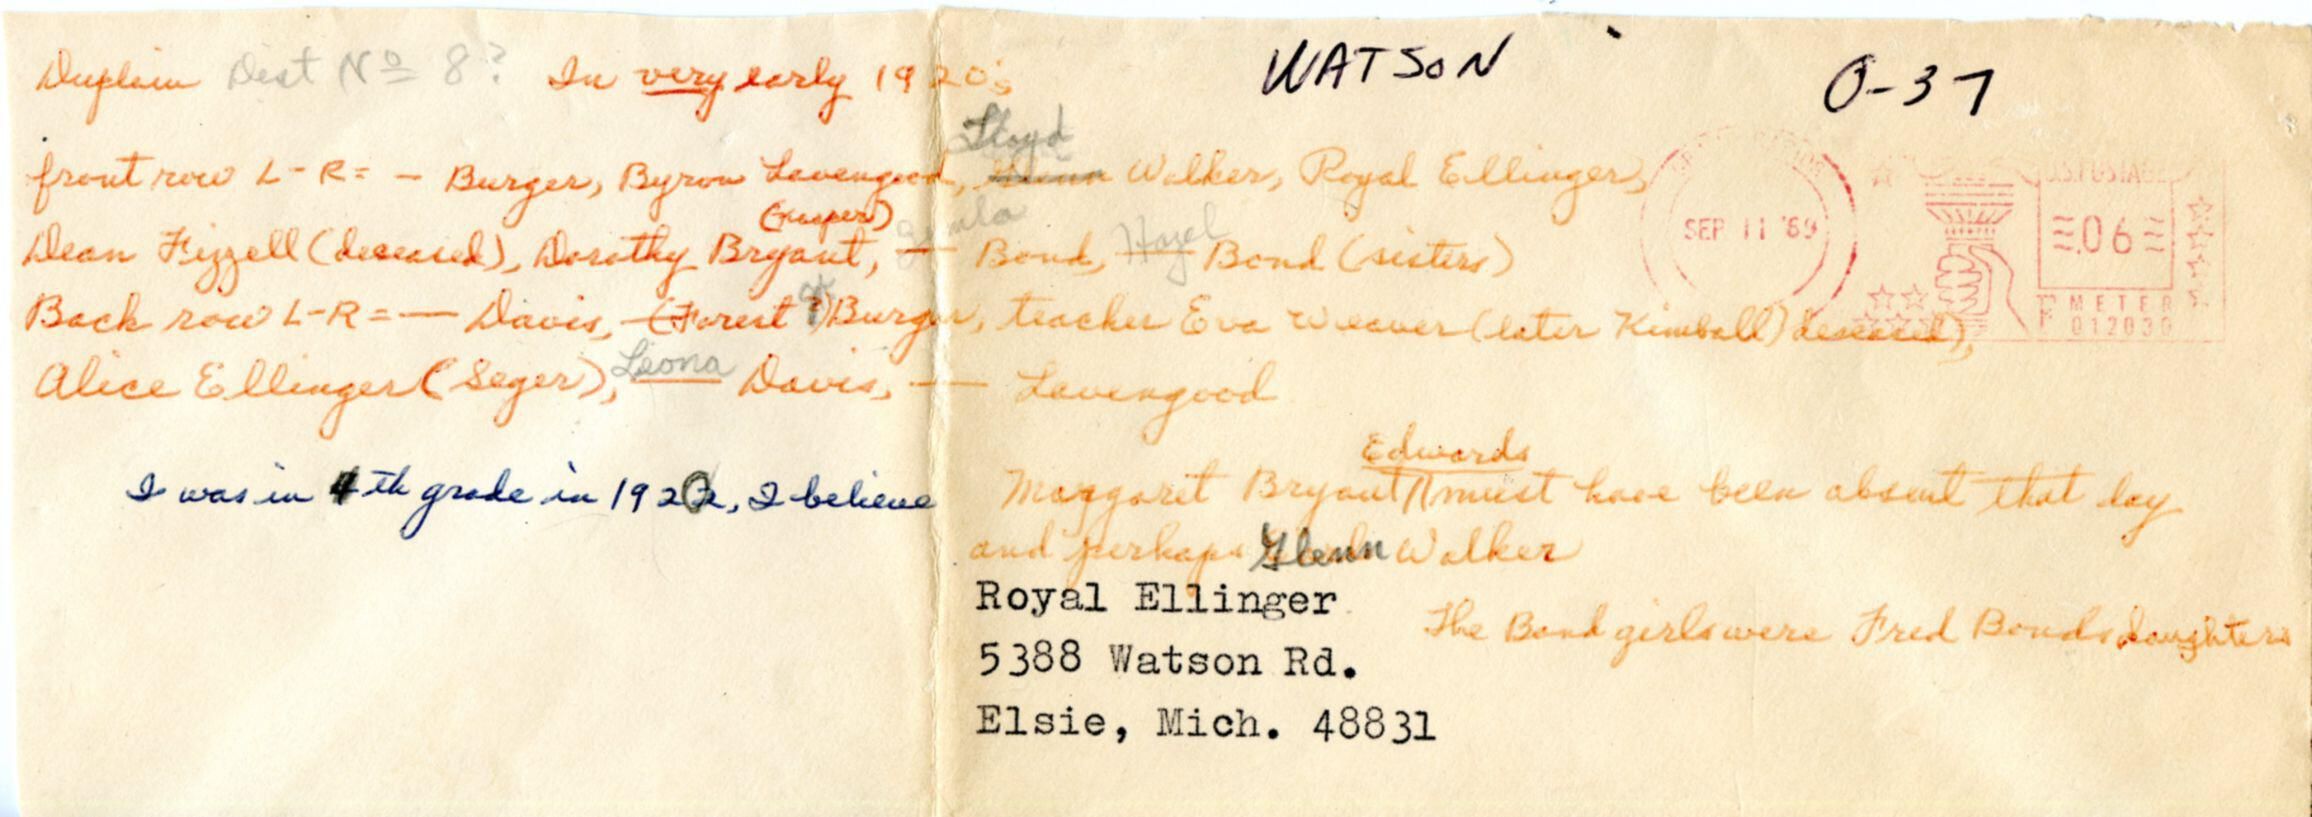 Duplain Dist No 8? In very early 1920's
WATSON
O-37
Lloyd
front row L-R= - Burger, Byron Lavengood, Glenn Walker, Royal Ellinger,
(Gasper)
Dean Fizzell (deceased), Dorothy Bryant, — Bond, Hazel Bond (sisters)
Back row L-R = — Davis, (Forest ?) Burger, teacher Eva Weaver (later Kimball) deceased),
Leona
Alice Ellinger (Seger), — Davis, — Lavengood
SEP 11 '69
U.S. POSTAGE
.06
METER
012030
I was in 4th grade in 1922, I believe
Edwards
Margaret Bryant must have been absent that day
and perhaps Glenn Walker
Royal Ellinger
5388 Watson Rd.
Elsie, Mich. 48831
The Bond girls were Fred Bonds daughters